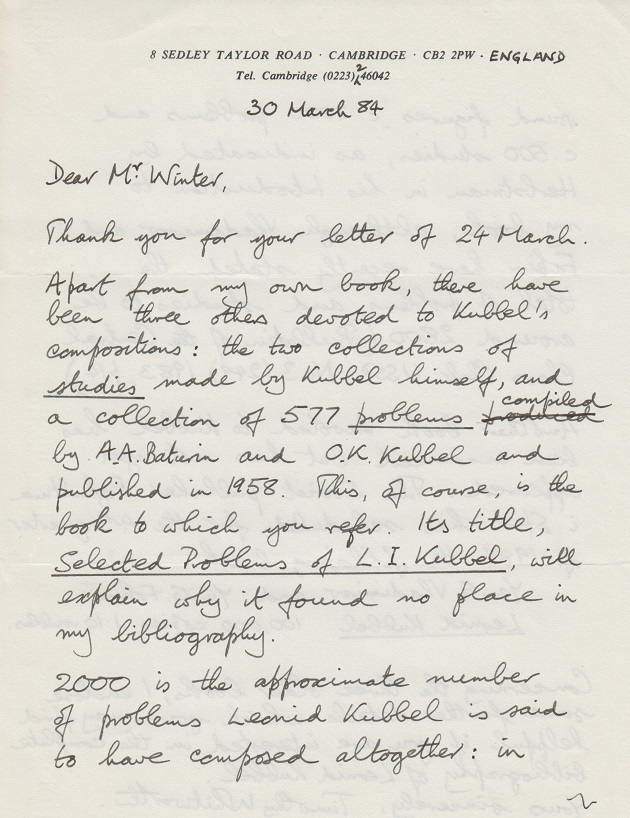 8 SEDLEY TAYLOR ROAD · CAMBRIDGE · CB2 2PW · ENGLAND
Tel. Cambridge (0223) 246042
30 March 84
Dear Mr Winter,
Thank you for your letter of 24 March.
Apart from my own book, there have
been three others devoted to Kubbel's
compositions: the two collections of
studies made by Kubbel himself, and
compiled
a collection of 577 problems produced
by A.A. Baturin and O.K. Kubbel and
published in 1958. This, of course, is the
book to which you refer. Its title,
Selected Problems of L.I. Kubbel, will
explain why it found no place in
my bibliography.
2000 is the approximate number
of problems Leonid Kubbel is said
to have composed altogether: in